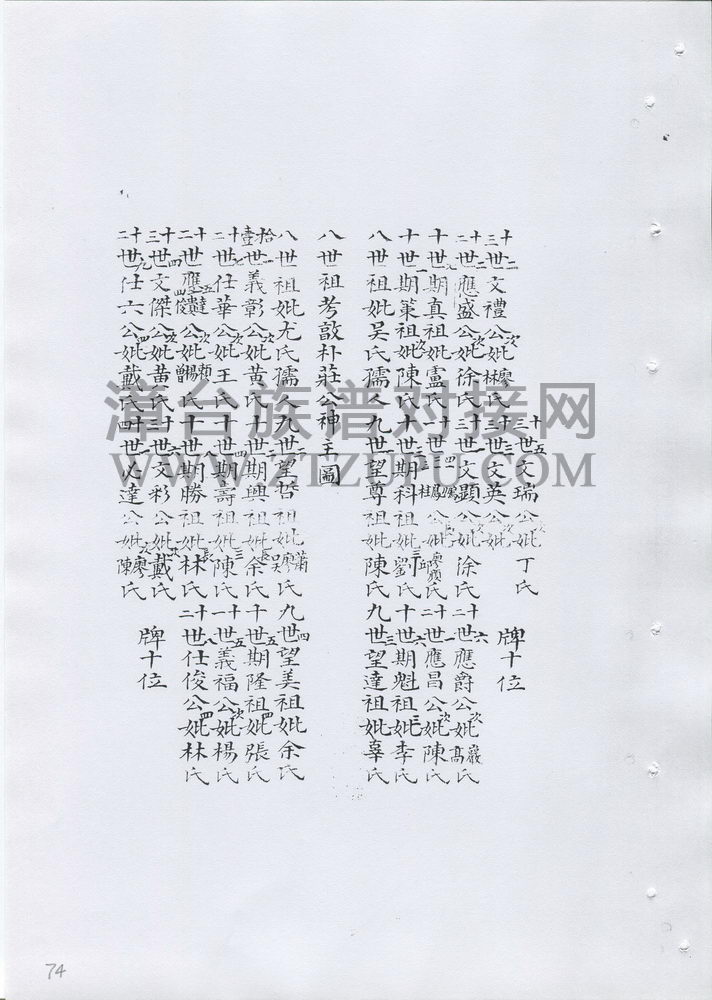 十三世五文瑞公妣次丁氏
牌十位
十三世二文禮公妣次廖林氏十三世文英公妣次
十二世應盛公妣次徐氏十三世文顯公妣徐氏十二世六應爵公妣次嚴高氏
十世期真祖妣盧氏十一世鳳桂公妣廖顏邱氏十二世應昌公妣次陳氏
十世期策祖妣次陳氏十世期科祖妣三劉氏十世六期魁祖妣三李氏
八世祖妣吳氏孺人九世望尊祖妣陳氏九世三望達祖妣辜氏
八世祖考敦朴莊公神主圖
八世祖妣尤氏孺人九世二望哲祖妣蕭廖吳氏九世四望美祖妣余氏
拾壹世義彰公妣次黃氏十世二期興祖妣長余氏十世五期隆祖妣四張氏
十二世七仕華公妣次王氏十世四期壽祖妣三陳氏十一世五義福公妣次楊氏
十二世應俊公妣次賴楊曾氏十世期勝祖妣長林氏十二世八仕俊公妣四林氏
十三世四文傑公妣次黃氏十三世六文彩公妣次戴氏
牌十位
十二世九仕六公妣四戴氏十四世必達公妣次廖陳氏
滿台族谱对接网
WWW.ZTZUPU.COM
74